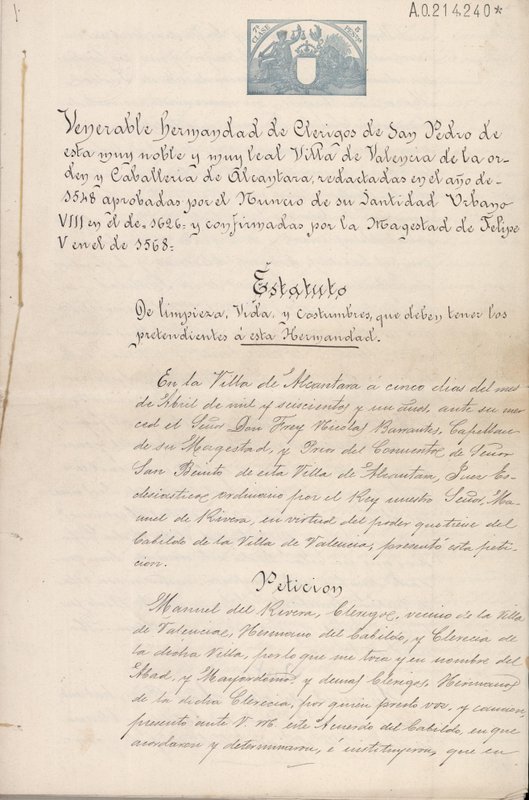 A.0.214.240*
7ª CLASE 5 PESETAS
Venerable hermandad de Clerigos de San Pedro de
esta muy noble y muy leal Villa de Valencia de la or-
den y Caballeria de Alcantara, redactadas en el año de-
1548 aprobadas por el Nuncio de su Santidad Urbano
VIII en el de 1626= y confirmadas por la Magestad de Felipe
V en el de 1568=
Estatuto
De limpieza, Vida, y costumbres, que deben tener los
pretendientes á esta Hermandad.
En la Villa de Alcantara á cinco dias del mes
de Abril de mil y seiscientos y un años, ante su mer-
ced el Señor Don Frey Nicolas Barrantes, Capellan
de su Magestad, y Prior del Convento de Señor
San Benito de esta Villa de Alcantara, Juez Ec-
clesiastico ordinario por el Rey nuestro Señor, Ma-
nuel de Rivera, en virtud del poder que tiene del
Cabildo de la Villa de Valencia, presentó esta peti-
cion.
Peticion
Manuel del Rivera, Clerigo, vecino de la Villa
de Valencia, Hermano del Cabildo, y Clerecia de
la dicha Villa, por lo que me toca y en nombre del
Abad, y Mayordomo y demas Clerigos, Hermanos
de la dicha Clerecia, por quien presto voz, y caucion,
presento ante V. M. este Acuerdo del Cabildo, en que
acordaron y determinaron, é instituyeron, que en